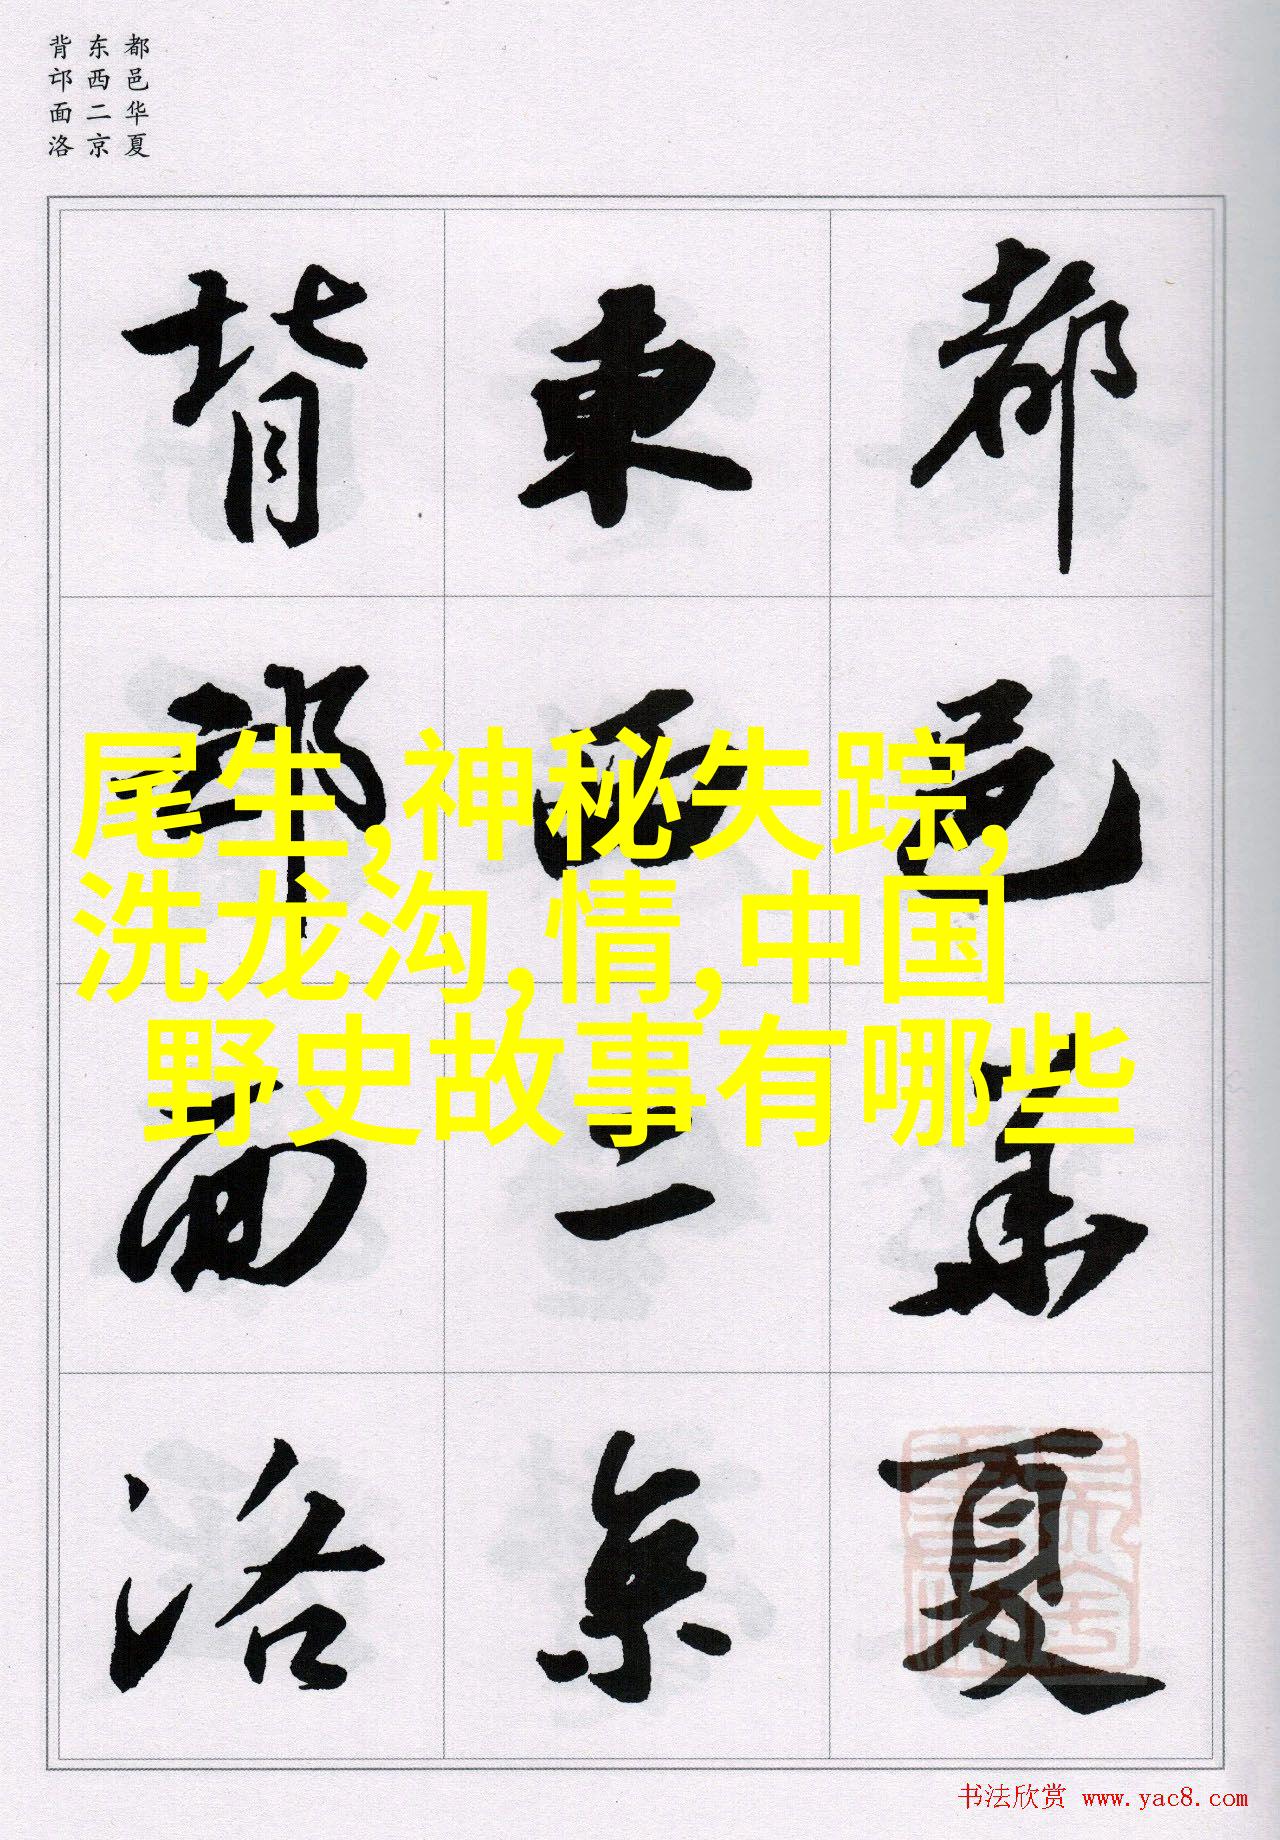 都邑华夏
东西二京
背邙面洛
都邑華夏
東西二京
背邙面洛
尾生,神秘失踪,
洗龙沟,情,中国
野史故事有哪些
书法欣赏 www.yac8.com